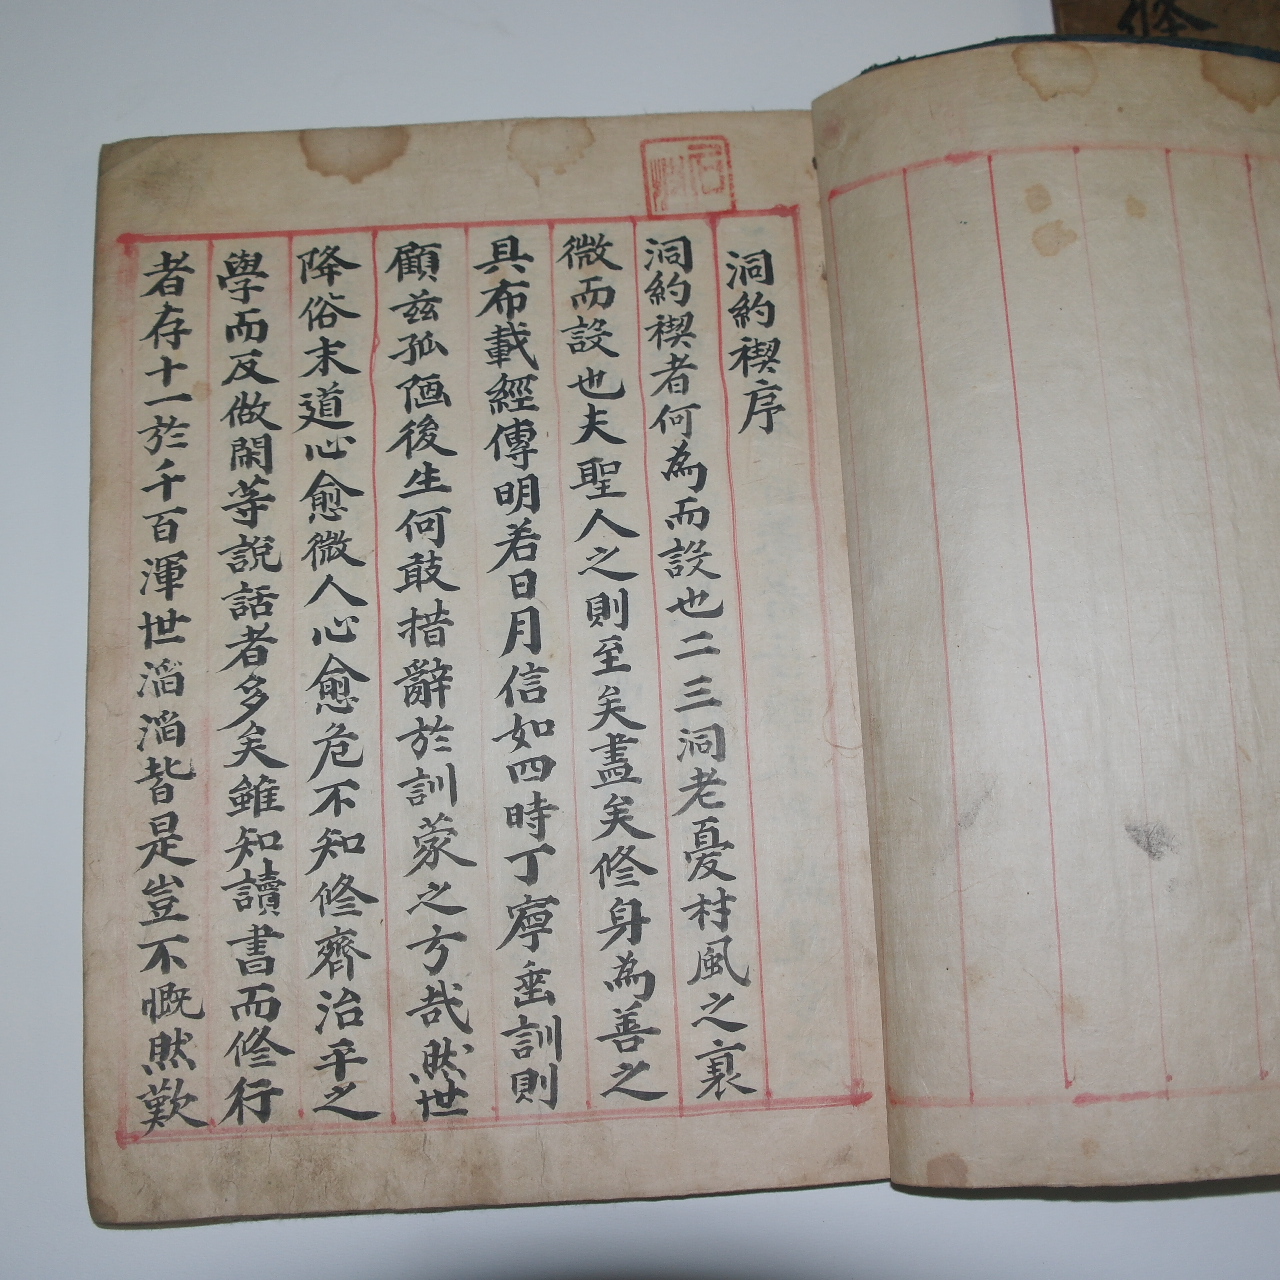 洞約禊序
洞約禊者何為而設也二三洞老憂村風之裏
微而設也夫聖人之則至矣盡矣修身為善之
具布載經傳明若日月信如四時丁寧垂訓則
顧玆孤陋後生何敢措辭於訓蒙之方哉然世
降俗末道心愈微人心愈危不知修齊治平之
學而反做閑等說話者多矣雖知讀書而修行
者存十一於千百渾世滔滔皆是豈不慨然歎
修